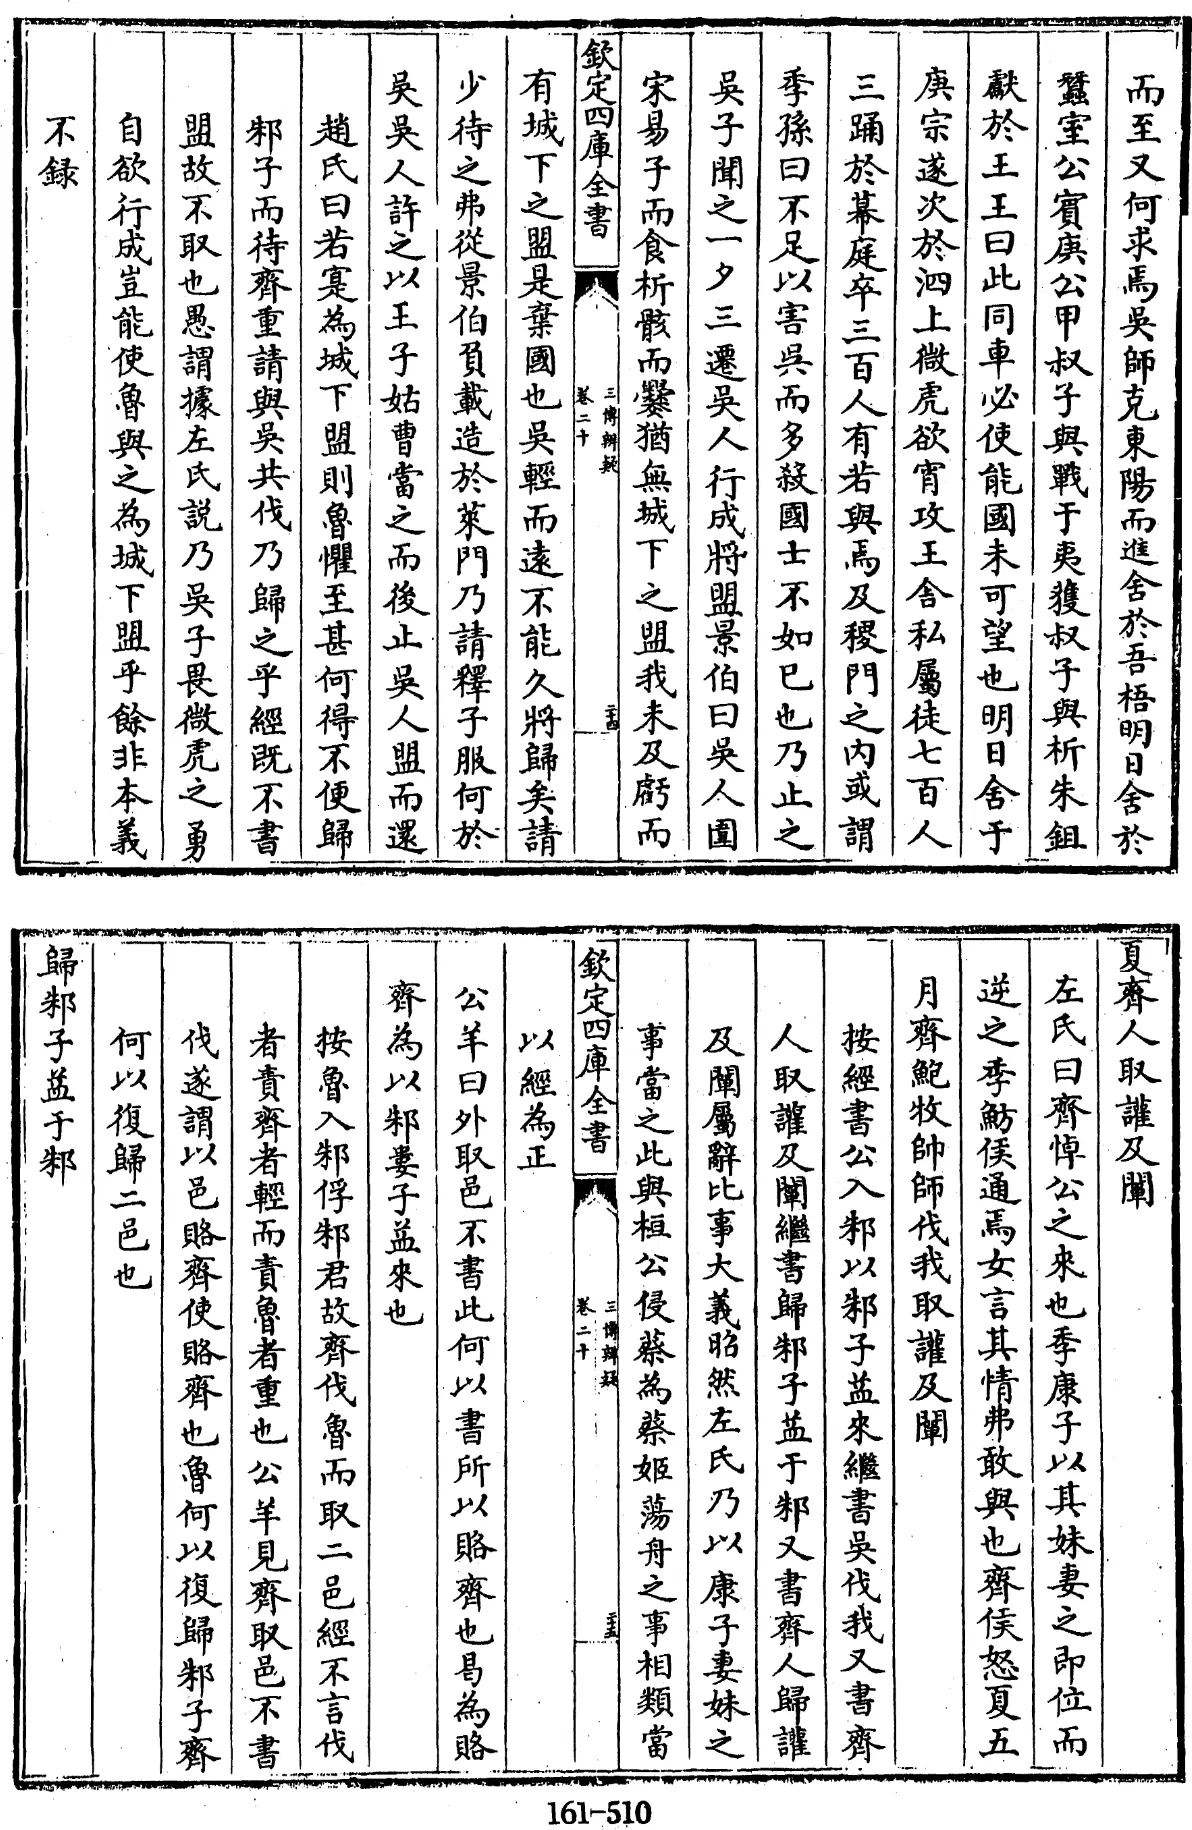 而至又何求焉吳師克東陽而進舍於吾梧明日舍於
蠶室公賓庚公甲叔子與戰于夷獲叔子與析朱鉏
獻於王王曰此同車必使能國未可望也明日舍于
庚宗遂次於泗上微虎欲宵攻王舍私屬徒七百人
三踊於幕庭卒三百人有若與焉及稷門之内或謂
季孫曰不足以害吳而多殺國士不如已也乃止之
吳子聞之一夕三遷吳人行成將盟景伯曰吳人圍
宋易子而食析骸而爨猶無城下之盟我未及虧而
欽定四庫全書
三傳辨疑
卷二十
二十四
有城下之盟是棄國也吳輕而遠不能久將歸矣請
少待之弗從景伯負載造於萊門乃請釋子服何於
吳吳人許之以王子姑曹當之而後止吳人盟而還
趙氏曰若寔為城下盟則魯懼至甚何得不便歸
邾子而待齊重請與吳共伐乃歸之乎經既不書
盟故不取也愚謂據左氏説乃吳子畏微虎之勇
自欲行成豈能使魯與之為城下盟乎餘非本義
不録
夏齊人取讙及闡
左氏曰齊悼公之來也季康子以其妹妻之即位而
逆之季魴侯通焉女言其情弗敢與也齊侯怒夏五
月齊鮑牧帥師伐我取讙及闡
按經書公入邾以邾子益來繼書吳伐我又書齊
人取讙及闡繼書歸邾子益于邾又書齊人歸讙
及闡屬辭比事大義昭然左氏乃以康子妻妹之
事當之此與桓公侵蔡為蔡姬蕩舟之事相類當
欽定四庫全書
三傳辨疑
卷二十
二十五
以經為正
公羊曰外取邑不書此何以書所以賂齊也曷為賂
齊為以邾婁子益來也
按魯入邾俘邾君故齊伐魯而取二邑經不言伐
者責齊者輕而責魯者重也公羊見齊取邑不書
伐遂謂以邑賂齊使賂齊也魯何以復歸邾子齊
何以復歸二邑也
歸邾子益于邾
161-510